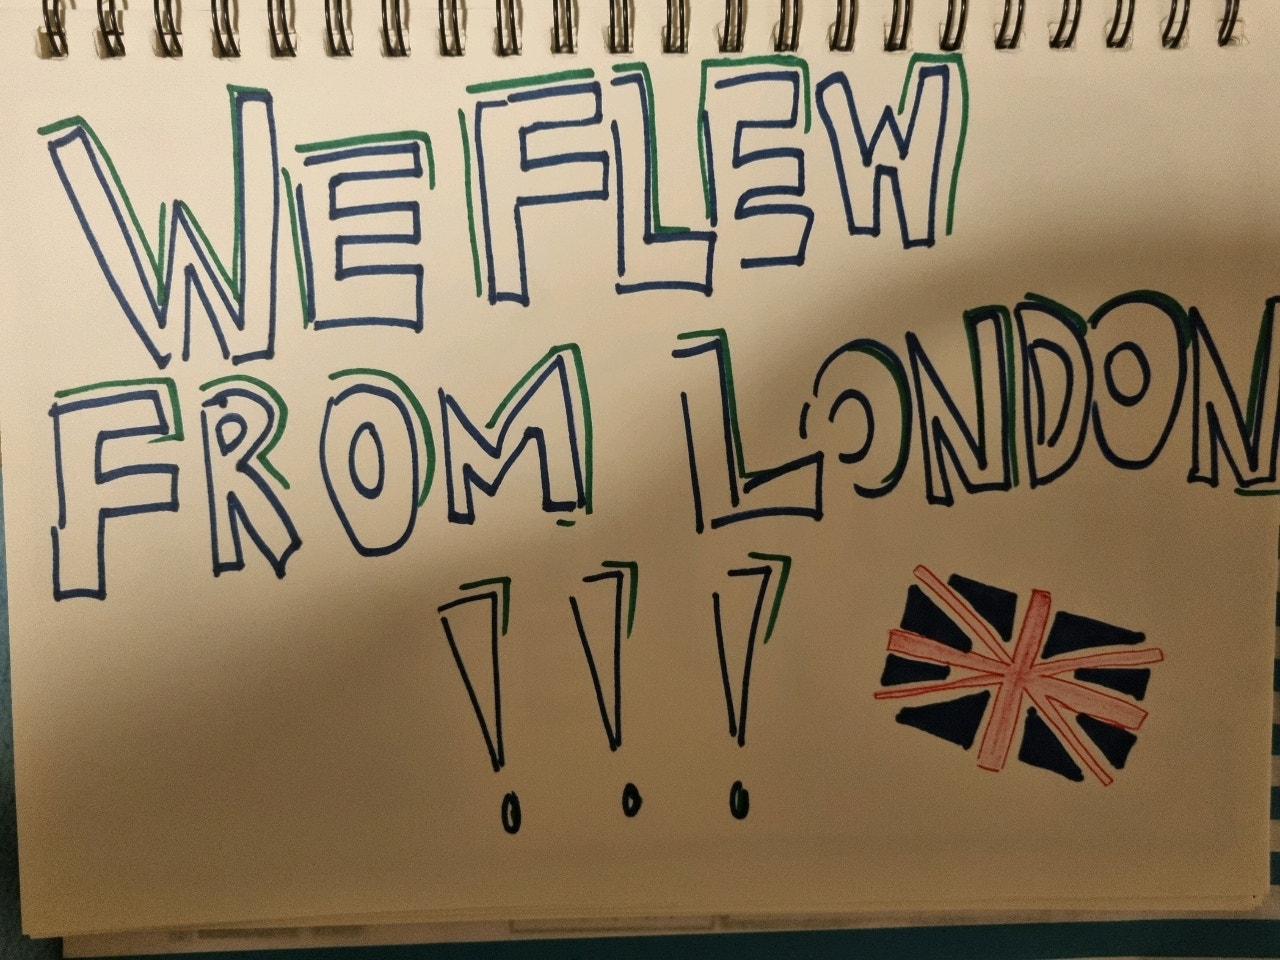 WE FLEW
FROM LONDON
!!!